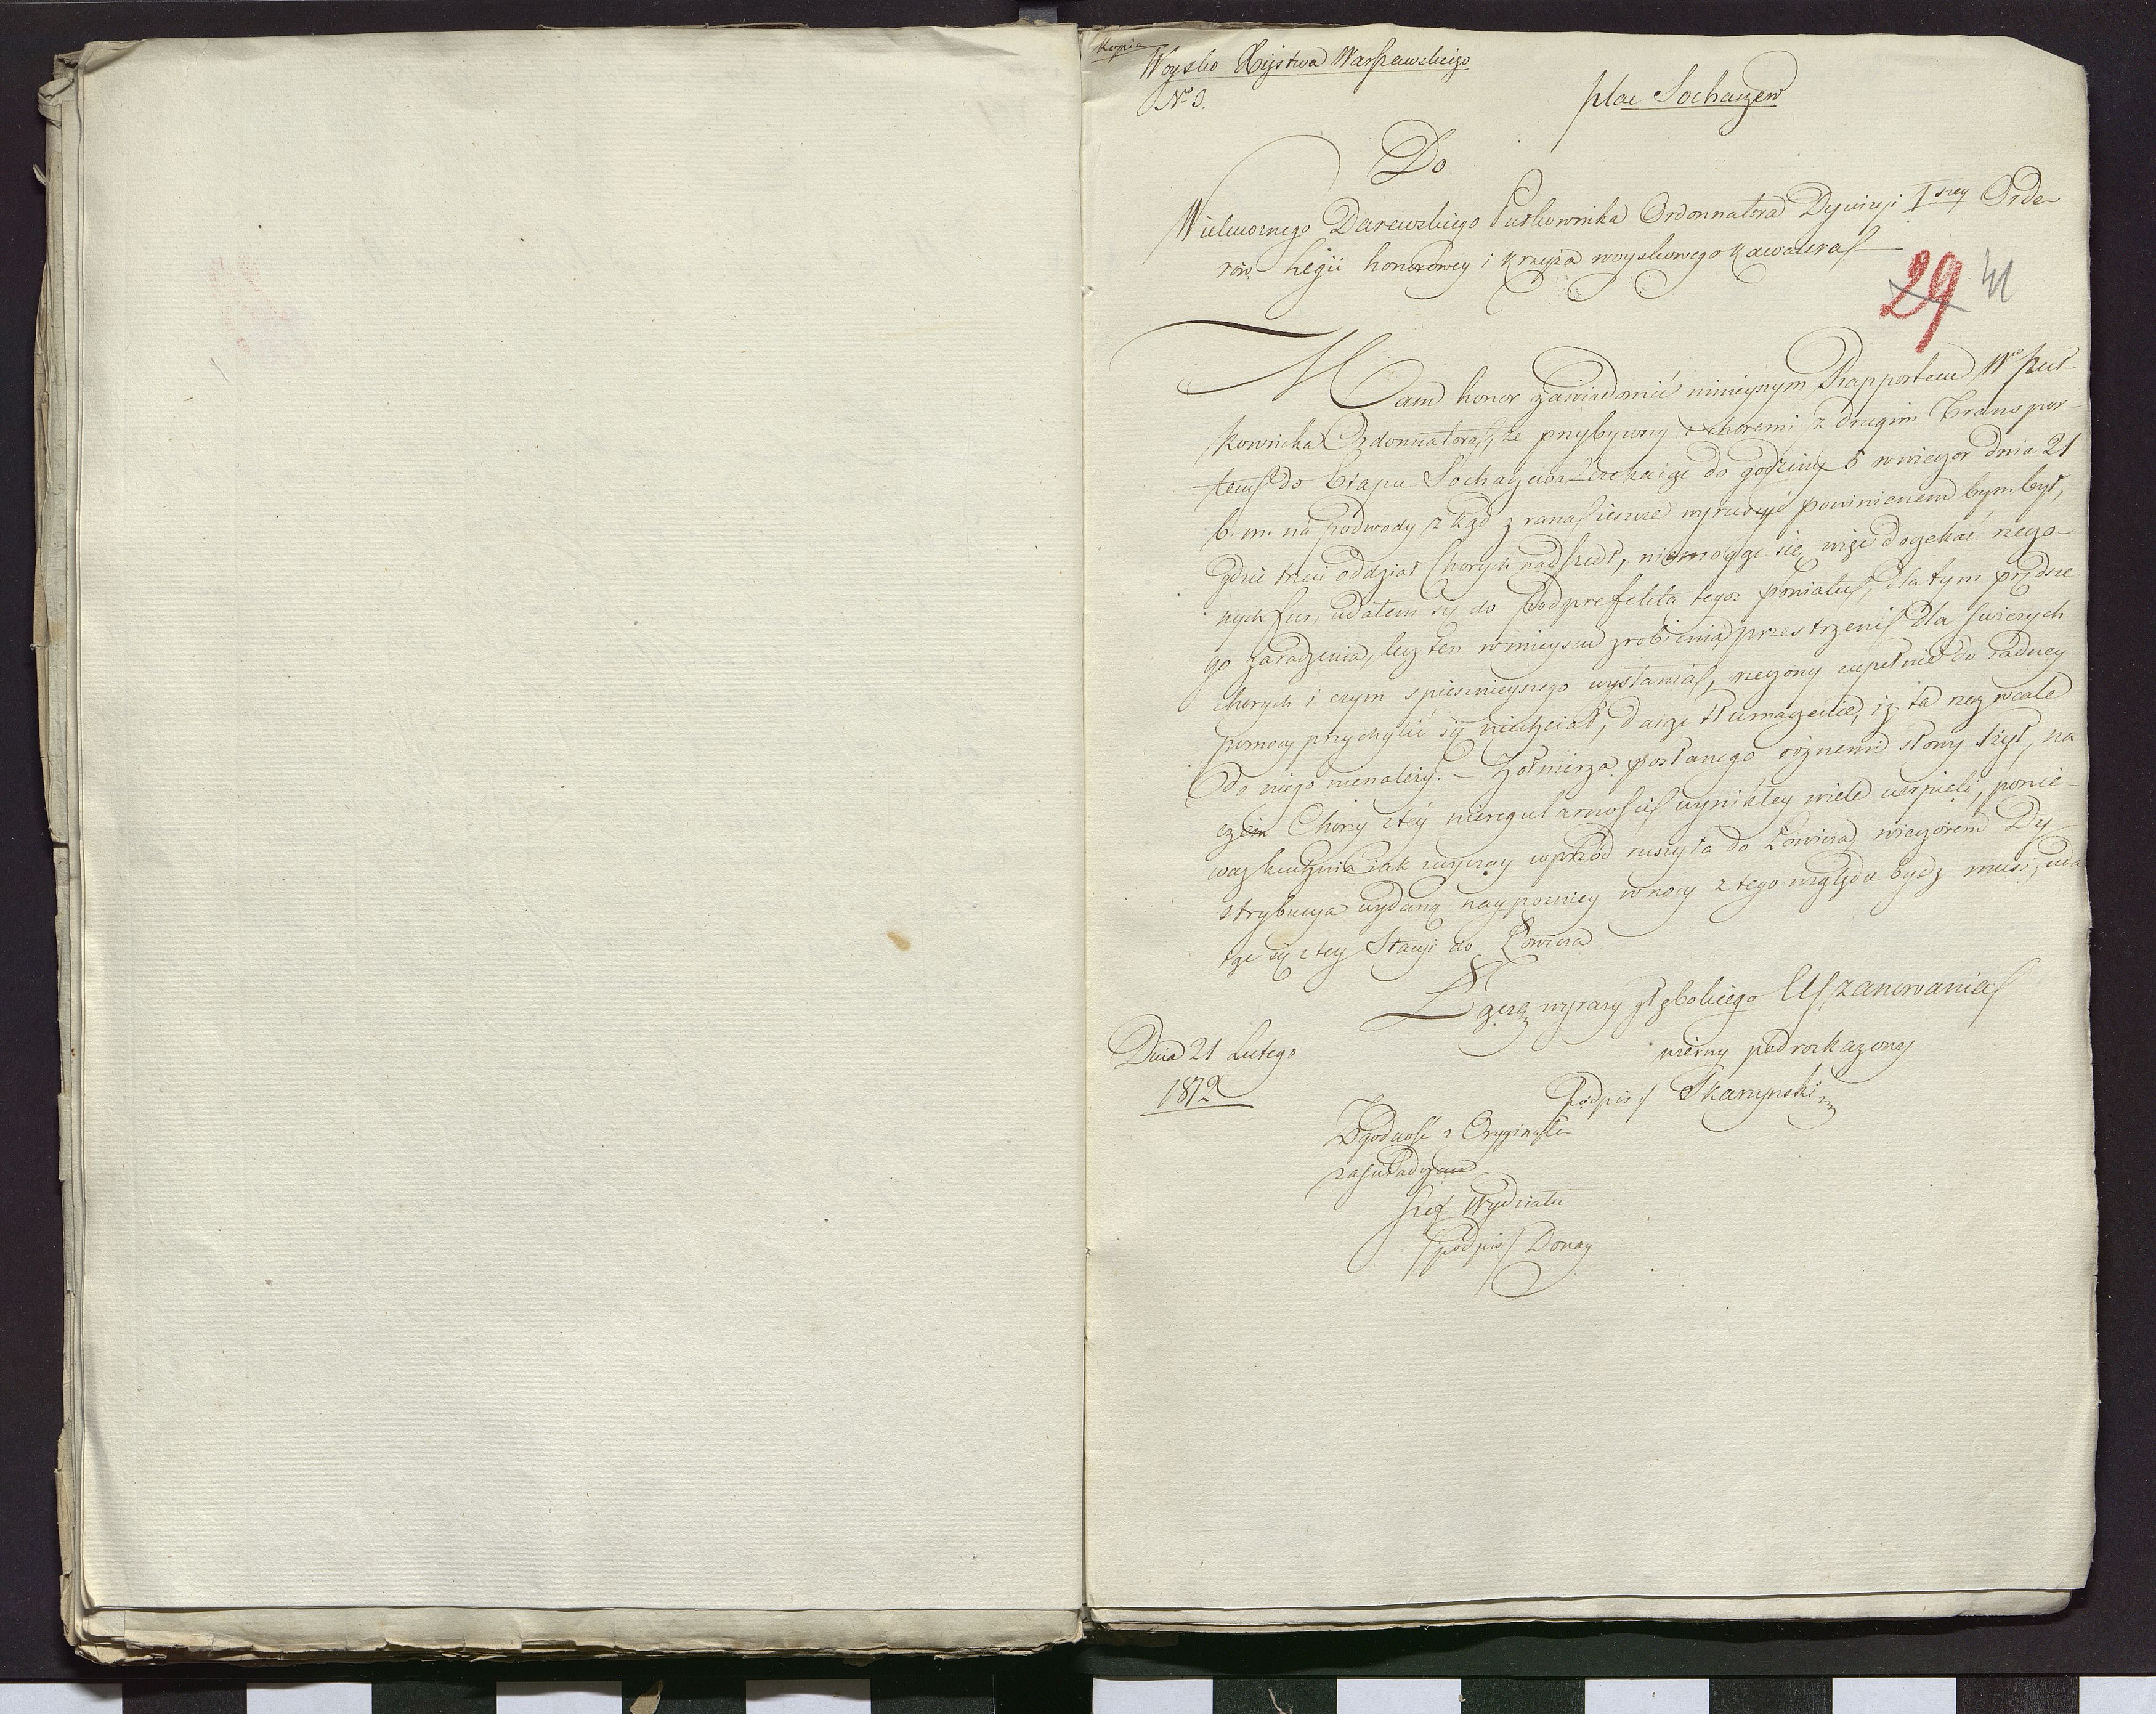 Kopia
Woysko Xięstwa Warszawskiego
No 3.
plac Sochaczew
Do
Wielmożnego Darewskiego Pułkownika Ordonnatora Dywizyi Iszey Orde-
rów Legii honorowey i Krzyża woyskowego Kawalera
29 41
Mam honor zawiadomić ninieyszym Rapportem Wo Puł-
kownika Ordonnatora, że przybywszy z choremi z drugim Transpor-
tem do Etapu Sochaczewa Czekaiąc do godziny 5 wwieczor dnia 21
b. m. na podwody, z kąd z rana ieszcze wyruszyć powinienem bym był,
gdzie trzeci oddział Chorych nadszedł, niemogąc się więc doczekać rzeczo-
nych fur, udałem się do Podprefekta tegoż powiatu, dla tym prędsze-
go zaradzenia, lecz ten wmieyscu zrobienia przestrzeni dla świeżych
chorych i czym spiesznieyszego wysłania, rzeczony zupełnie do żadney
pomocy przychylić się niechciał, daiąc tłumaczenie, iż ta rzecz wcale
Do niego nienależy. – Żołnierza posłanego różnemi słowy lżył, na
czém Chorzy ztéy nieregularności wynikłey wiele ucierpieli, ponie-
waż kuchnia iak zwyczay wprzód ruszyła do Łowicza, wieczorem Dy-
strybucya wydaną naypozniey wnocy z tego względu bydź musi, uda-
iąc się ztey Stacyi do Łowicza
Łączę wyrazy głębokiego Uszanowania
wierny podrozkazowy
Dnia 21 Lutego
1812
Podpis / Skarzynski
Zgodność z Oryginałem
zaświadczam
Szef Wydziału
/podpis/ Donay